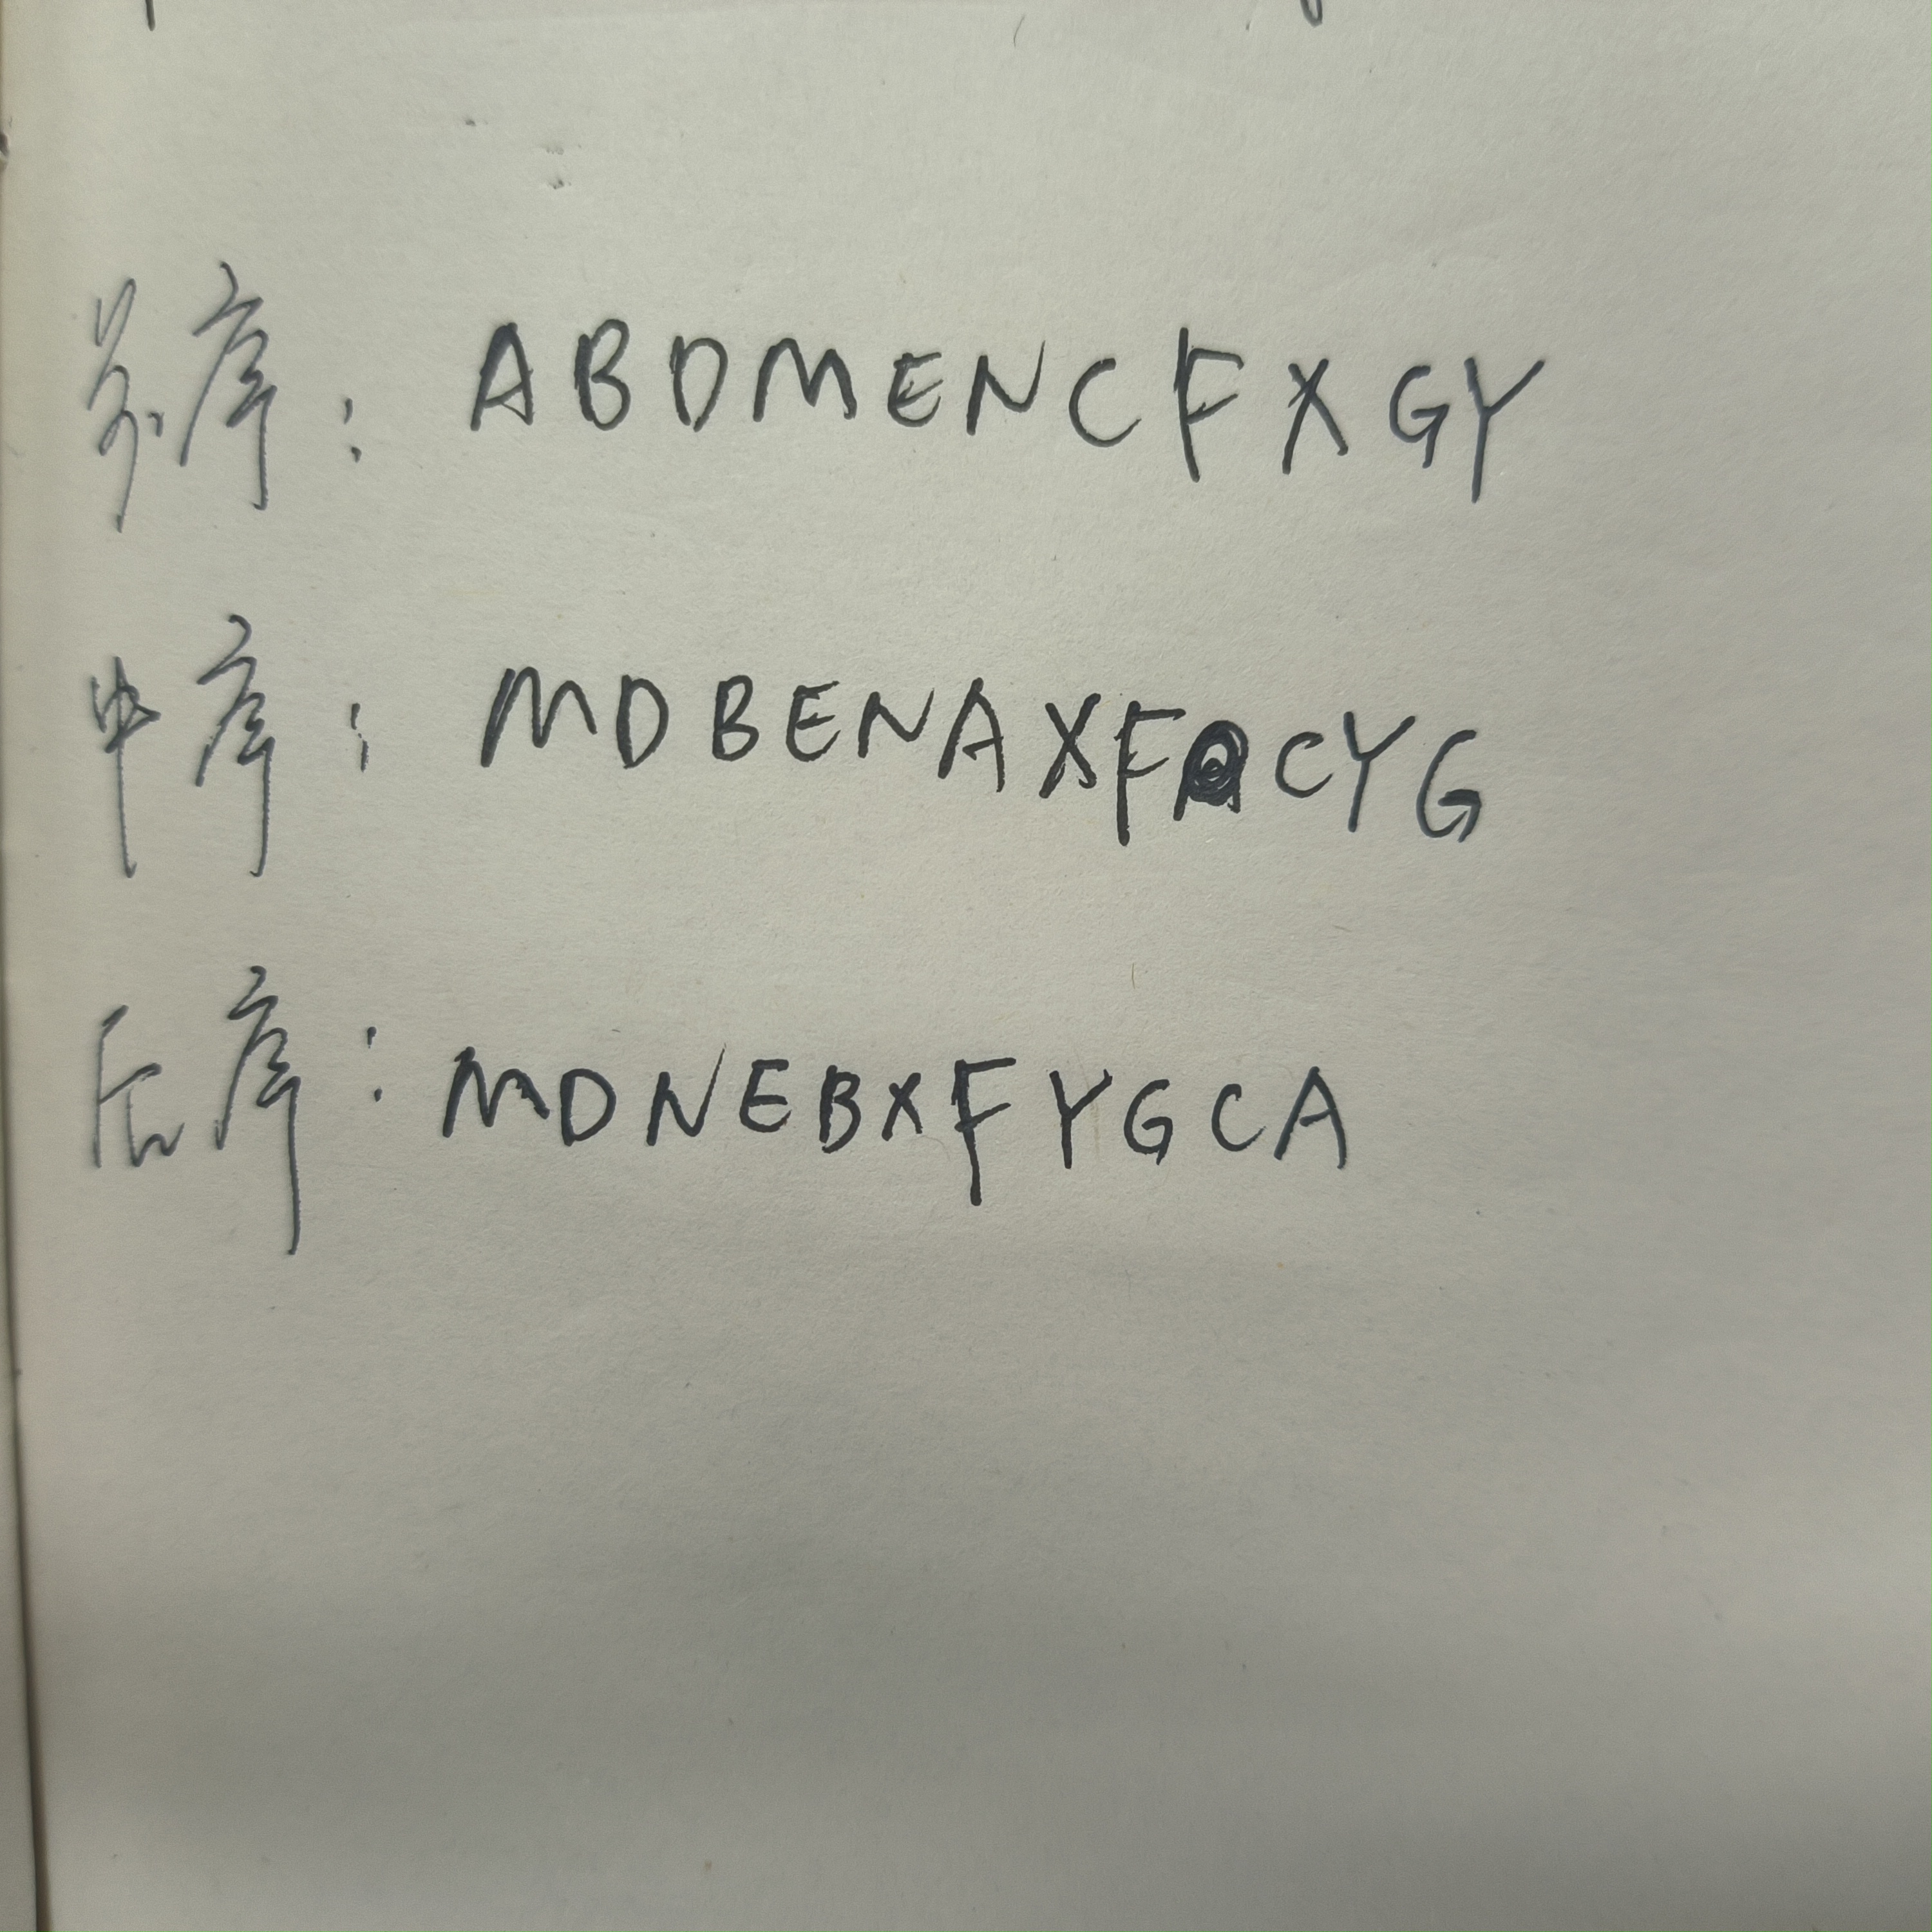 前序: ABDMENCFXGY
中序: MDBENAXFCYG
后序: MDNEBXFYGCA